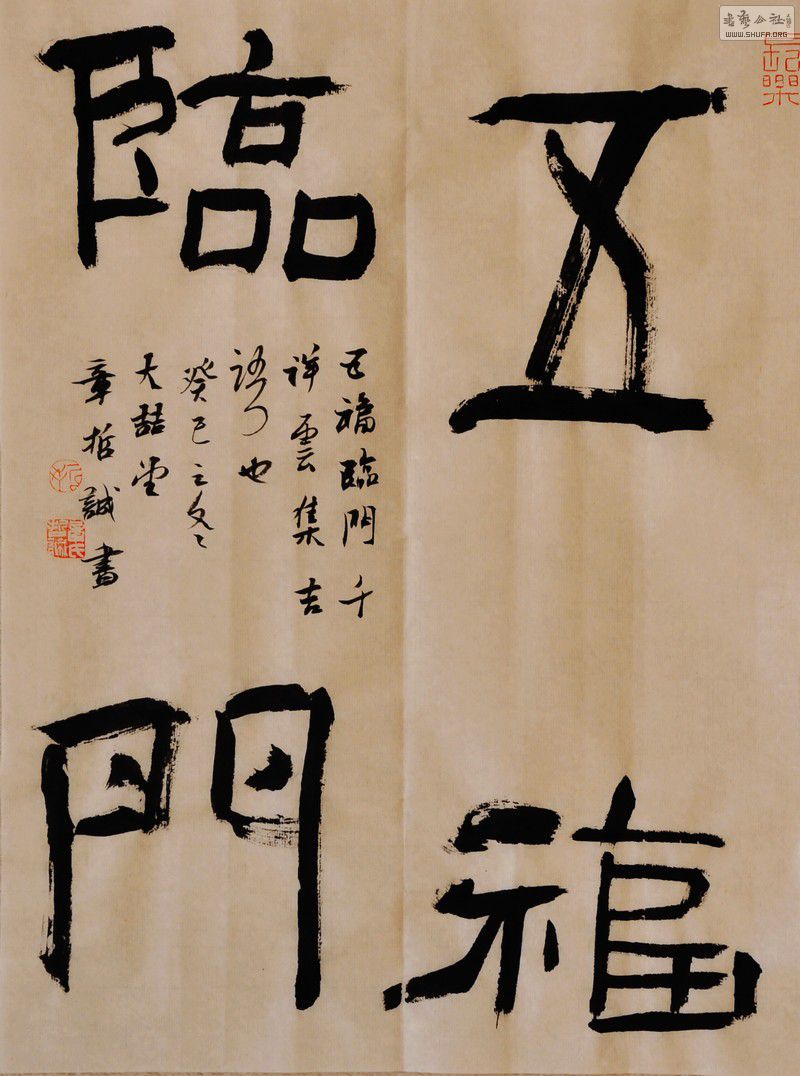 五福
臨門
五福臨門千
祥雲集吉
語也
癸巳之冬
大喆堂
章哲誠書
書藝公社
WWW.SHUFA.ORG